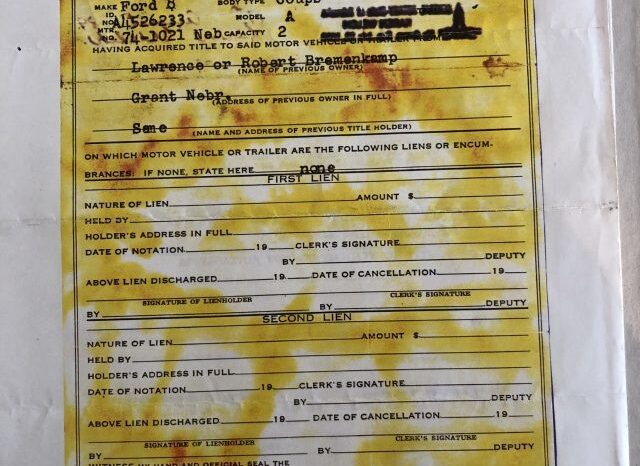 MAKE Ford 8 BODY TYPE Coupe
ID NO. A4526233 MODEL A
MTR. NO. 74-1021 Neb CAPACITY 2
HAVING ACQUIRED TITLE TO SAID MOTOR VEHICLE OR TRAILER FROM
Lawrence or Robert Bremenkamp
(NAME OF PREVIOUS OWNER)
Grant Nebr.
(ADDRESS OF PREVIOUS OWNER IN FULL)
Same
(NAME AND ADDRESS OF PREVIOUS TITLE HOLDER)
ON WHICH MOTOR VEHICLE OR TRAILER ARE THE FOLLOWING LIENS OR ENCUM-
BRANCES: IF NONE, STATE HERE none
FIRST LIEN
NATURE OF LIEN AMOUNT $
HELD BY
HOLDER'S ADDRESS IN FULL
DATE OF NOTATION 19 CLERK'S SIGNATURE
BY DEPUTY
ABOVE LIEN DISCHARGED 19 DATE OF CANCELLATION 19
SIGNATURE OF LIENHOLDER CLERK'S SIGNATURE
BY BY DEPUTY
SECOND LIEN
NATURE OF LIEN AMOUNT $
HELD BY
HOLDER'S ADDRESS IN FULL
DATE OF NOTATION 19 CLERK'S SIGNATURE
BY DEPUTY
ABOVE LIEN DISCHARGED 19 DATE OF CANCELLATION 19
SIGNATURE OF LIENHOLDER CLERK'S SIGNATURE
BY BY DEPUTY
WITNESS MY HAND AND OFFICIAL SEAL THE